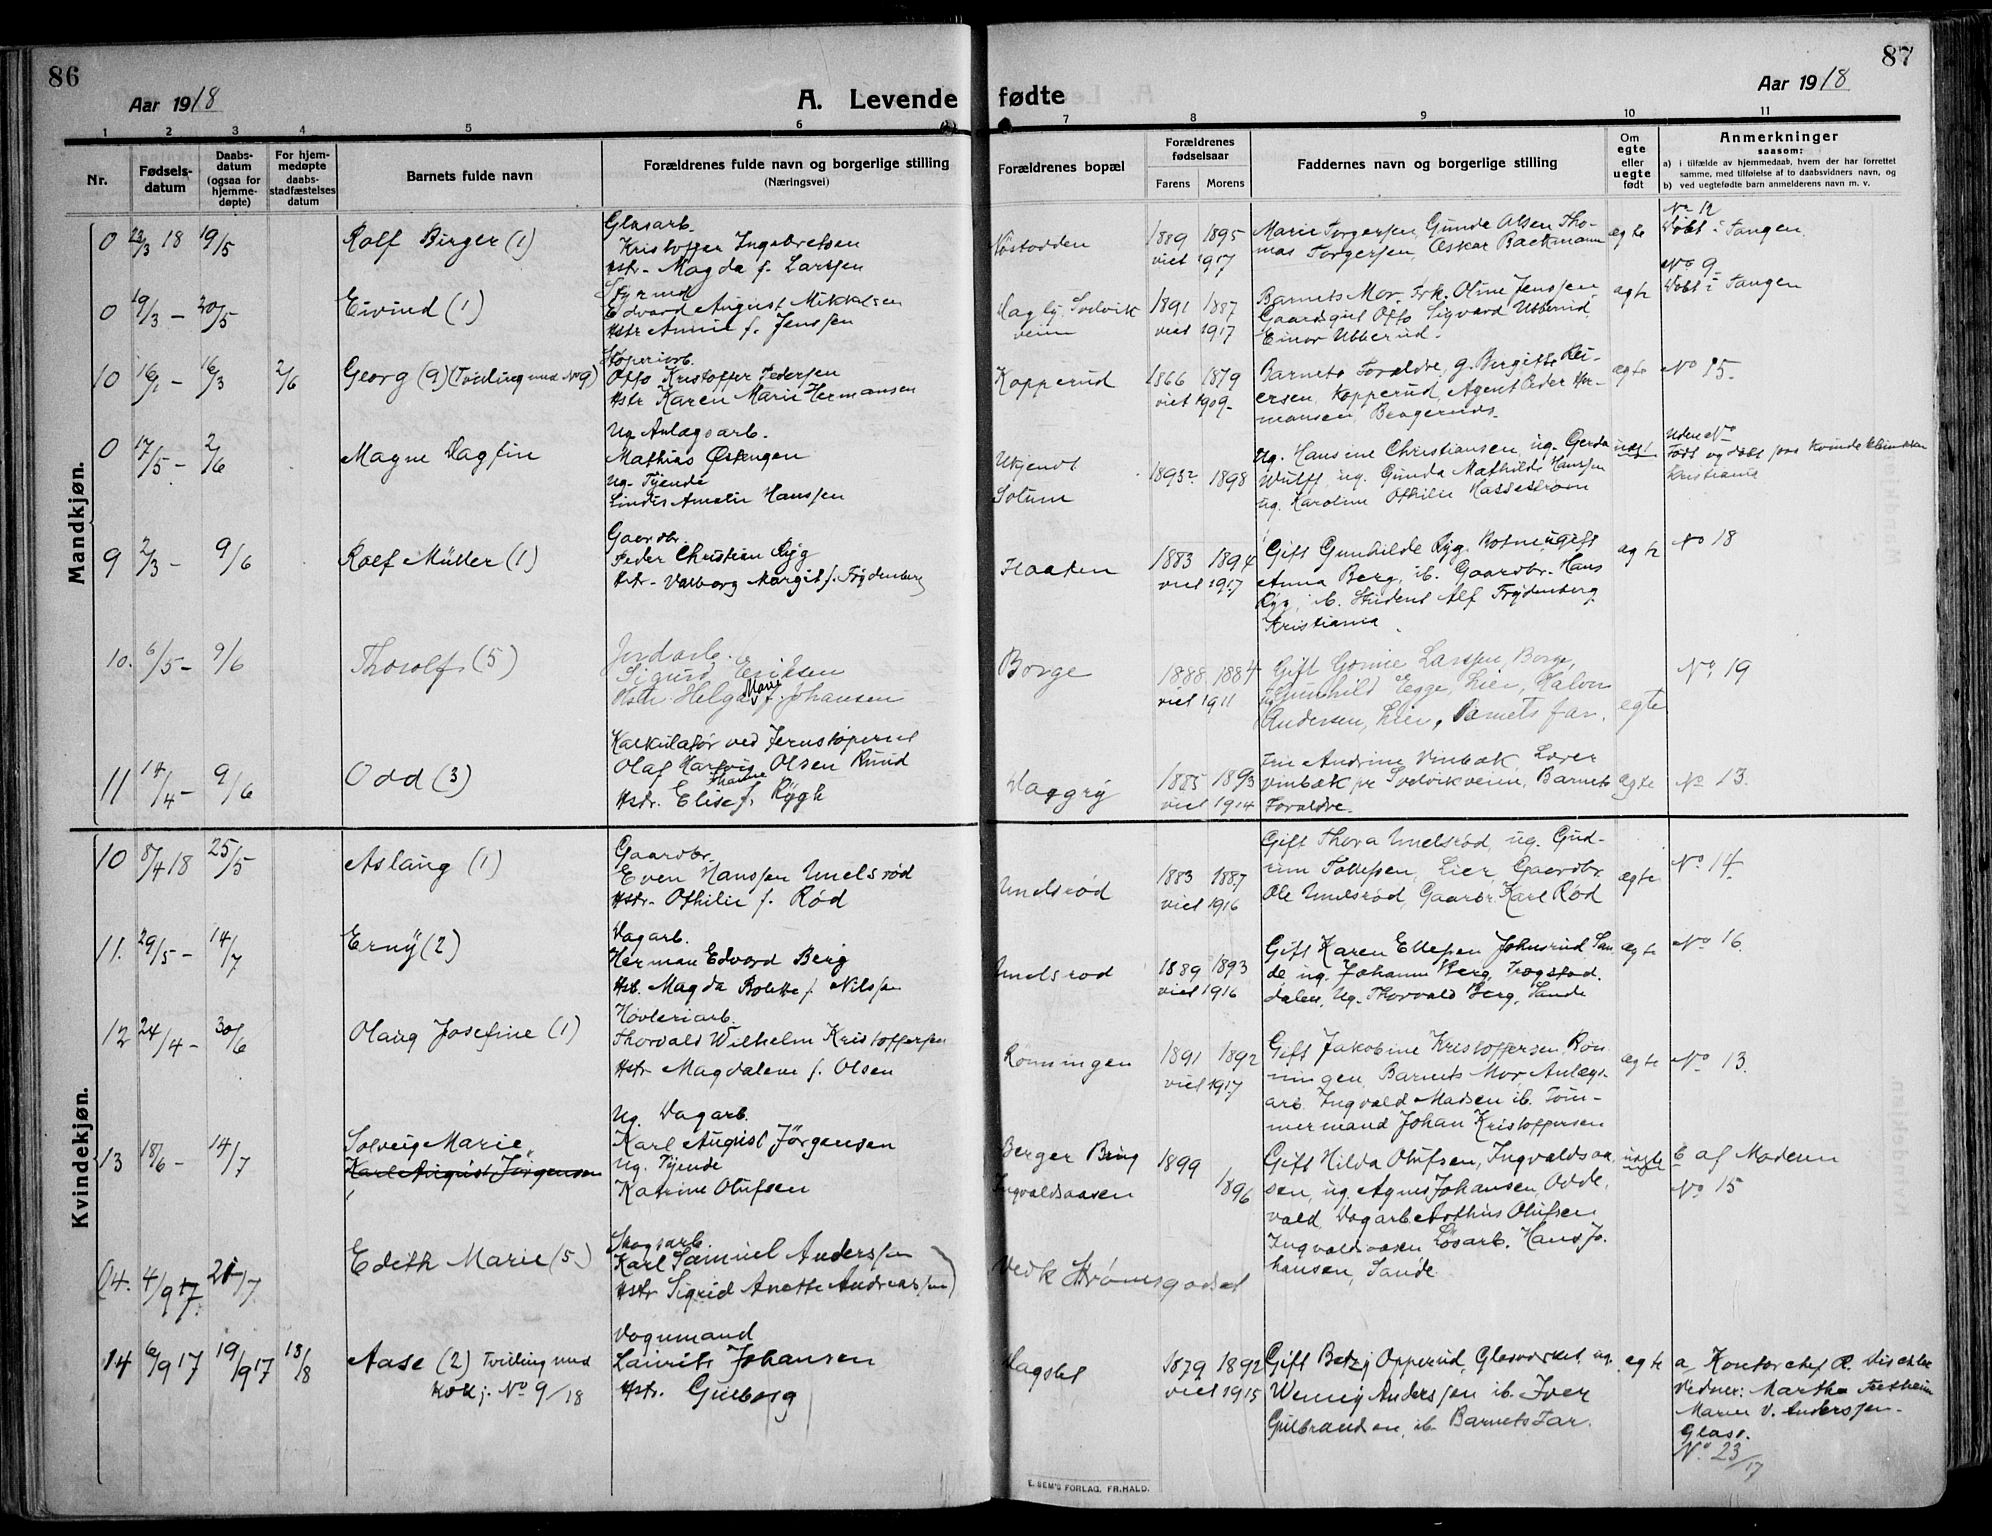 86
Aar 1918
A. Levende fødte
Aar 1918
87
1 2 3 4 5 6 7 8 9 10 11
Nr.
Fødsels-
datum
Daabs-
datum
(ogsaa for
hjemme-
døpte)
For hjem-
medøpte
daabs-
stadfæstelses
datum
Barnets fulde navn
Forældrenes fulde navn og borgerlige stilling
(Næringsvei)
Forældrenes bopæl
Forældrenes
fødselsaar
Farens Morens
Faddernes navn og borgerlige stilling
Om
egte
eller
uegte
født
Anmerkninger
saasom:
a) i tilfælde av hjemmedaab, hvem der har forrettet
samme, med tilføielse af to daabsvidners navn, og
b) ved uegtefødte barn anmelderens navn m. v.
Mandkjøn.
0 23/3 18 19/5
Rolf Birger (1)
Glasarb.
Kristoffer Ingebretsen
Hstr. Magda f. Larssen
1889 1895
viet 1917
Marie Torgersen, Gunda Olsen Tho-
mas Torgersen, Oskar Backmann
egte
No 12
Døbt i Tangen.
0 19/3 – 20/5
Eivind (1)
Styrmd
Edvard August Mikkelsen
Hstr Annie f. Jenssen
veien
1891 1887
viet 1917
Barnets Mor. Frk. Oline Jenssen
Gaardsgut Otto Sigvard Ubberud,
Einar Ubberud.
egte
No 9
Døbt i Tangen
10 16/1 – 16/3 2/6
Georg (9) (Tvilling med No 9)
Støperiarb.
Otto Kristoffer Pedersen
Hstr Karen Marie Hermansen
Kopperud
1866 1879
viet 1909.
Barnets Foraldre, g. Birgitte Rei-
ersen, Kopperud, Agent Peder Her-
mansen Bragernes.
egte
No 15.
0 17/5 – 2/6
Magne Dagfin
Ug. Anlægsarb.
Mathias Østengen
Ug. Tjende
Lindis Amalie Hanssen
Ukjendt
Solum
1893? 1898
Ug. Hansine Christiansen ug. Gerda
Wulff, ug. Gunda Mathilde Hanssen
ug. Karoline Othilie Hasselstrøm
uegte
Uden No
Født og døbt paa Kvindeklinikken
Kristiania
9 2/3 – 9/6
Rolf Müller (1)
Gaardbr.
Peder Christian Ryg
Hstr. Valborg Margit f. Frydenberg
Haaten
1883 1894
viet 1917
Gift Gunhilde Ryg. Botne, ugift
Anna Berg, ib. Gaardbr. Hans
Ryg, ib. Student Alf Frydenberg
Kristiania
egte
No 18
10. 6/5 – 9/6
Thorolf (5)
Jordarb.
Sigurd Eriksen
Hstr. Helga Marie f. Johansen
Borge
1888 1884
viet 1911
Gift Gonine Larssen, Borge,
ug. Gunhild Egge, Lier, Halvor
Andersen, Lier, Barnets far.
egte
No. 19
11 14/4 – 9/6
Odd (3)
Kalkulatør ved Jernstøperiet
Olaf Hartvig Olsen Ruud
Hstr. Elise Thaune f. Rygh
1885 1893
viet 1914
Fru Andrine Vinbæk, Lærer
Vinbæk pr Svelvikveien, Barnets
Foraldre.
egte
No 13.
Kvindekjøn.
10 8/4 18 25/5
Aslaug (1)
Gaardbr.
Even Hanssen Unelsrød
Hstr. Othilie f. Rød
Unelsrød
1883 1887
viet 1916
Gift Thora Unelsrød, ug. Gud-
run Tollefsen, Lier, Gaardbr.
Ole Unelsrød, Gaarbr. Karl Rød
egte
No. 14.
11. 29/5 – 14/7
Erny (2)
Dagarb.
Herman Edvard Berg
Hstr. Magda Bolette f. Nilssen
Unelsrød
1889 1893
viet 1916
Gift Karen Ellefsen Johnsrud, San-
de ug. Johanne Berg, Trogstad
dalen, Ug. Thorvald Berg, Sande
egte
No 16.
12 24/4 – 30/6
Olaug Josefine (1)
Høvleriarb.
Thorvald Wilhelm Kristoffersen
Hstr Magdalene f. Olsen
Rønningen
1891 1892
viet 1917
Gift Jakobine Kristoffersen, Røn-
ningen, Barnets Mor, Anlægs-
arb. Ingvald Madsen ib. Tøm-
mermand Johan Kristoffersen
egte
No 13.
13 18/6 – 14/7
Solveig Marie
Karl August Jørgensen
Ug. Dagarb.
Karl August Jørgensen
Ug. Tjende
Katrine Olufsen
Berger Brug
Ingvaldsaasen
1899
1896
Gift Hilda Olufsen, Ingvaldsaa-
sen, ug. Agnes Johansen, Odde-
vald, Dagarb. Arthur Olufsen
Ingvaldsaasen Løsarb. Hans Jo-
hansen, Sande
uegte
b af Moderen
No. 15
04. 4/9 17 21/7
Edith Marie (5)
Skogsarb.
Karl Samuel Anderssen
Hstr Sigrid Anette Andreassen
Vedk Strømsgodset
14 6/9 17 19/9 17 18/8
Aase (2) Tvilling med
Kvkj. No 9/18
Vognmand
Laurits Johansen
Hstr. Gurborg
1879 1892
viet 1915
Gift Betzy Opperud, Glasværket, ug.
Wenny Anderssen ib. Iver
Gulbrandsen, ib. Barnets Far.
egte
a, Kontorchef R. Mischler
Vidner: Martha Fretheim
Marie V. Anderssen.
Glass.
No. 23/17
E. SEM'S FORLAG, FR.HALD.